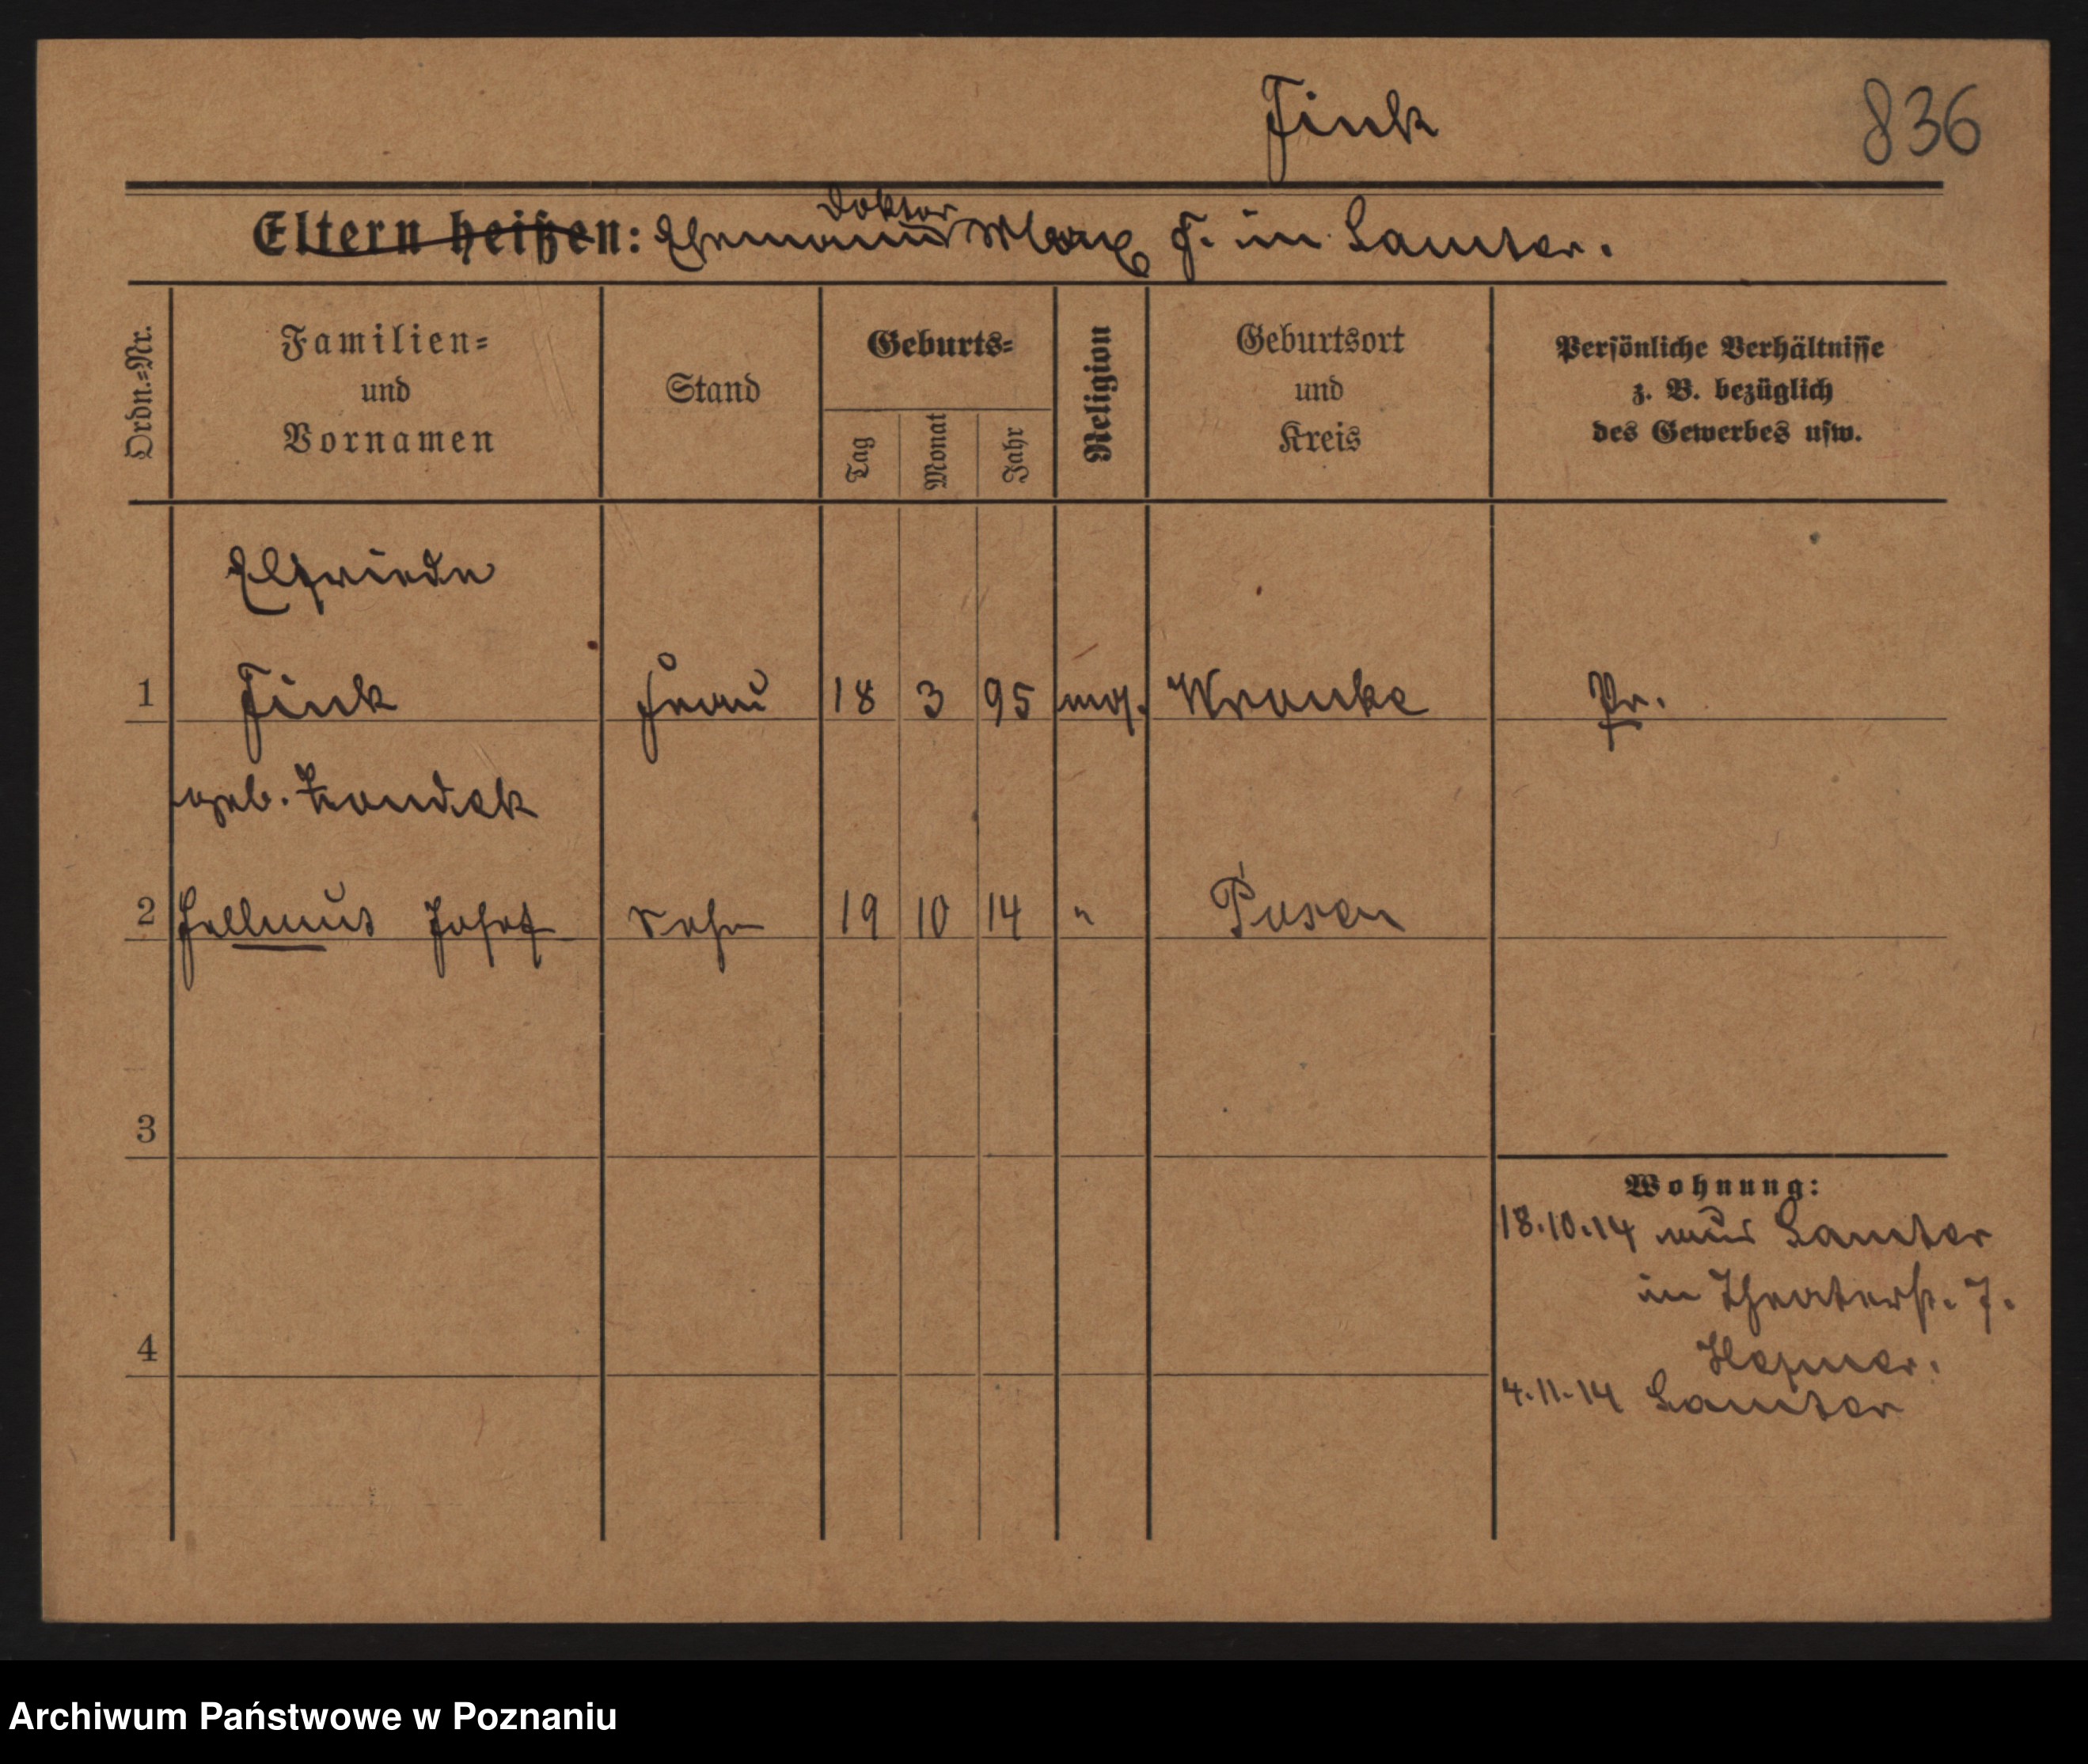 Fink
836
Eltern heißen: Ehemann Doktor Max F. in Samter.
Ordn.=Nr.
Familien=
und
Vornamen
Stand
Geburts=
Tag
Monat
Jahr
Religion
Geburtsort
und
Kreis
Persönliche Verhältnisse
z. B. bezüglich
des Gewerbes usw.
Elfriede
1 Fink Frau 18 3 95 mos. Wronke Pr.
geb. Zondek
2 Hellmut Josef Sohn 19 10 14 " Posen
3
Wohnung:
18.10.14 aus Samter
in Theaterstr. 7.
4
Hepner.
4.11.14 Samter
Archiwum Państwowe w Poznaniu